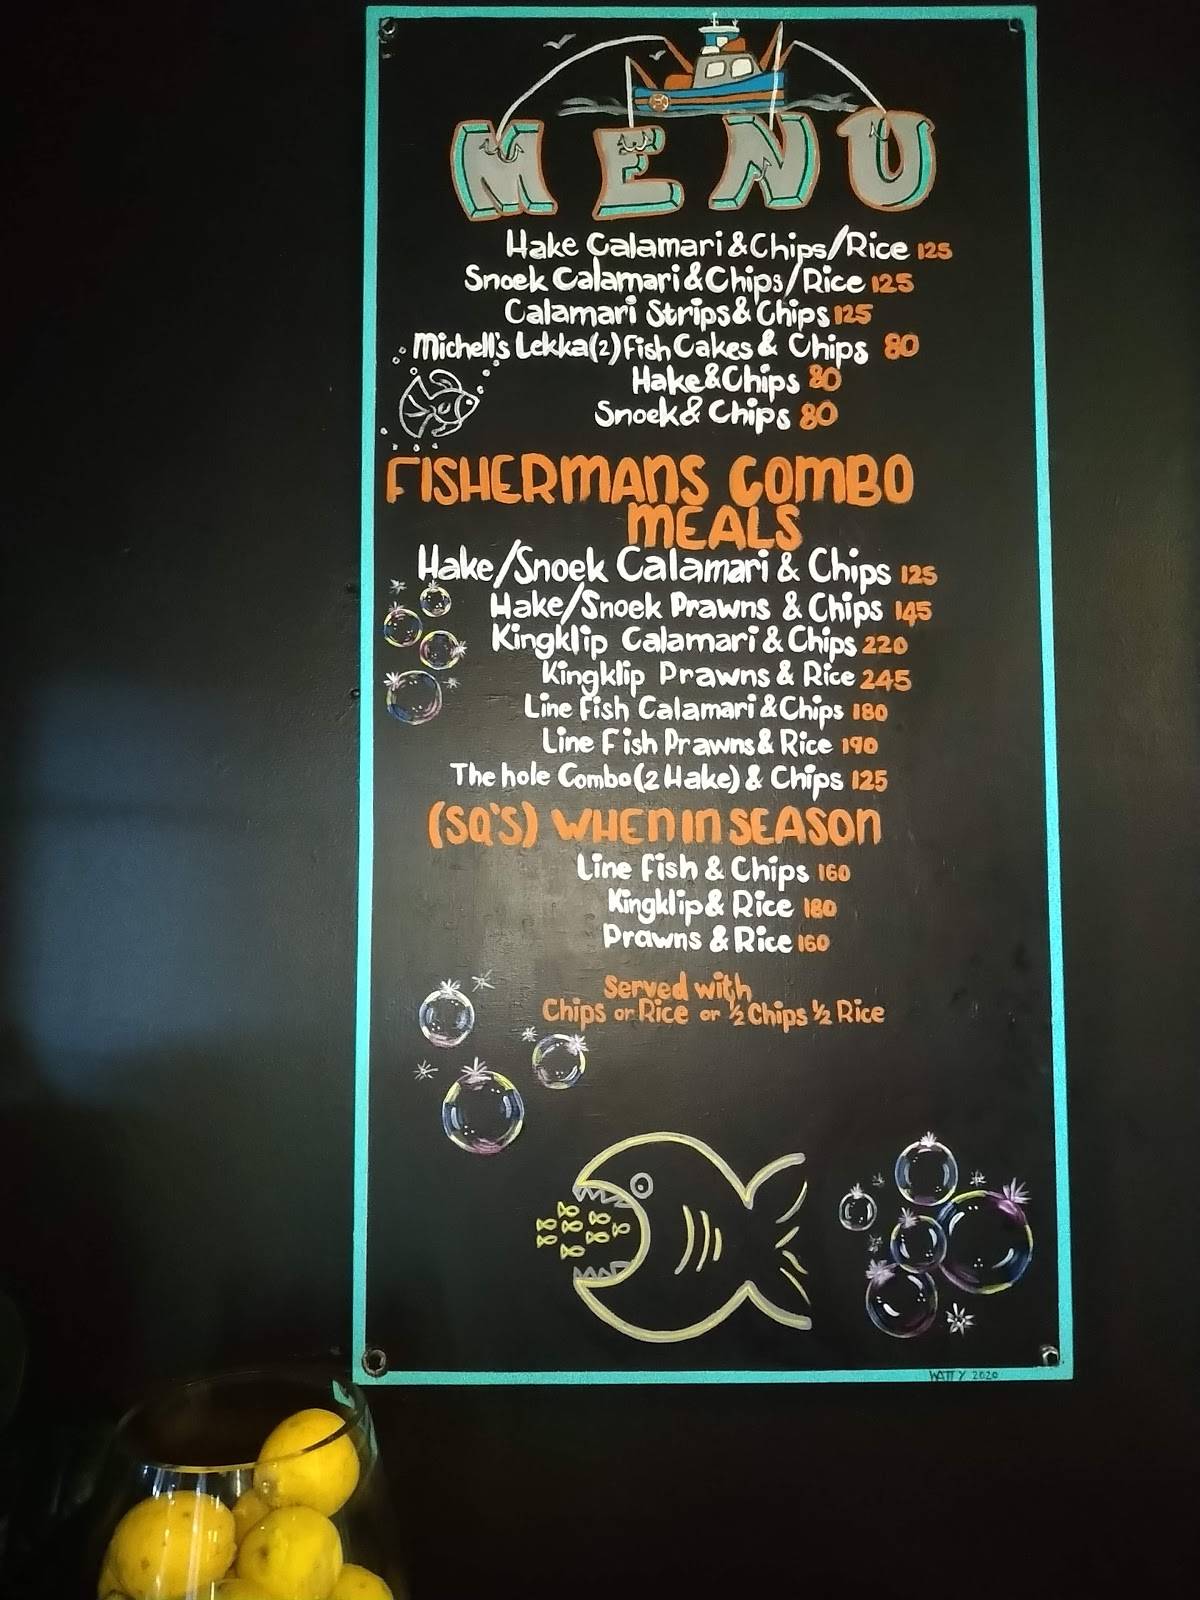 MENU
Hake Calamari & Chips/Rice 125
Snoek Calamari & Chips/Rice 125
Calamari Strips & Chips 125
Michell's Lekka (2) Fish Cakes & Chips 80
Hake & Chips 80
Snoek & Chips 80
FISHERMANS COMBO
MEALS
Hake/Snoek Calamari & Chips 125
Hake/Snoek Prawns & Chips 145
Kingklip Calamari & Chips 220
Kingklip Prawns & Rice 245
Line Fish Calamari & Chips 180
Line Fish Prawns & Rice 190
The hole Combo (2 Hake) & Chips 125
(SQ'S) WHEN IN SEASON
Line Fish & Chips 160
Kingklip & Rice 180
Prawns & Rice 160
Served with
Chips or Rice or ½ Chips ½ Rice
WATTY 2020